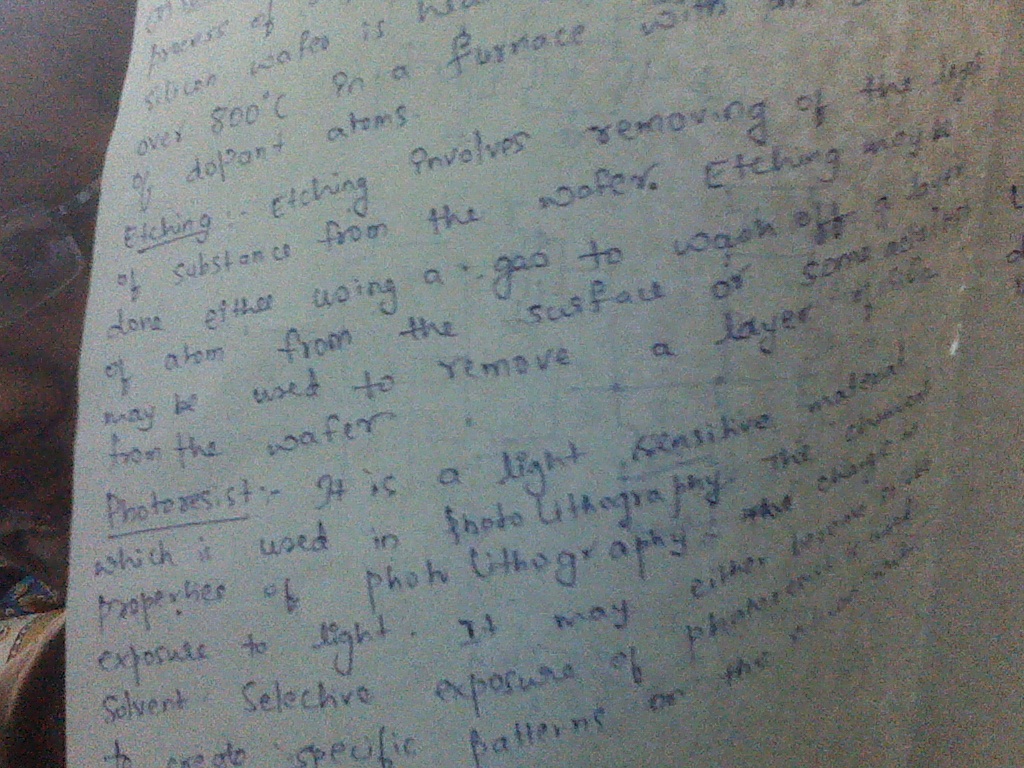 process of
silicon wafer is
over 800°C in a furnace with
of dopant atoms.
Etching :- Etching involves removing of the
of substance from the wafer. Etching may be
done either using a gas to wash off a layer
of atom from the surface or some
may be used to remove a layer of
from the wafer.
Photoresist :- It is a light sensitive material
which is used in photolithography. The chemical
properties of photolithography the change
exposure to light. It may either become
Solvent Selective exposure of photoresist is used
to create specific patterns on the